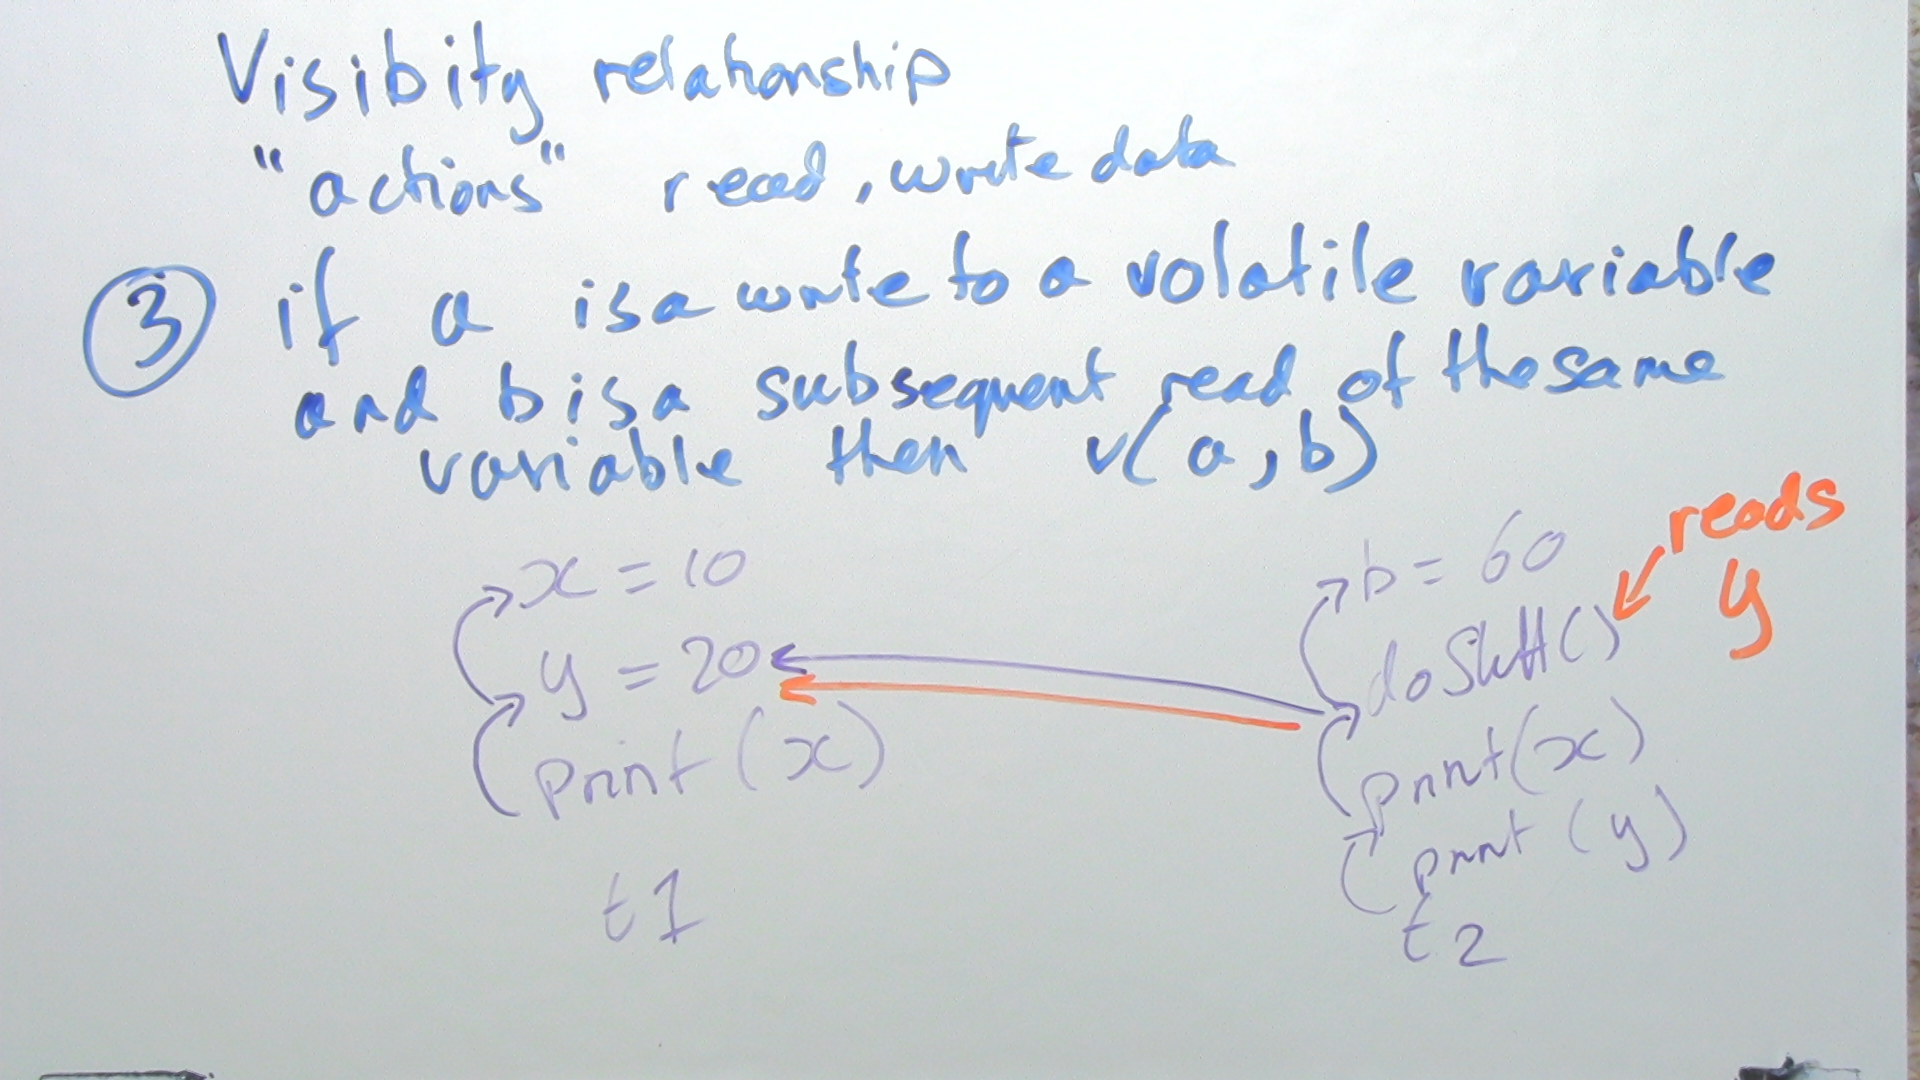 Visibity relationship
"actions" read, write data
3 if a is a write to a volatile variable
and b is a subsequent read of the same
variable then v(a,b)
reads
y
x = 10
y = 20
print (x)
t1
b = 60
doStuff()
print(x)
print (y)
t2